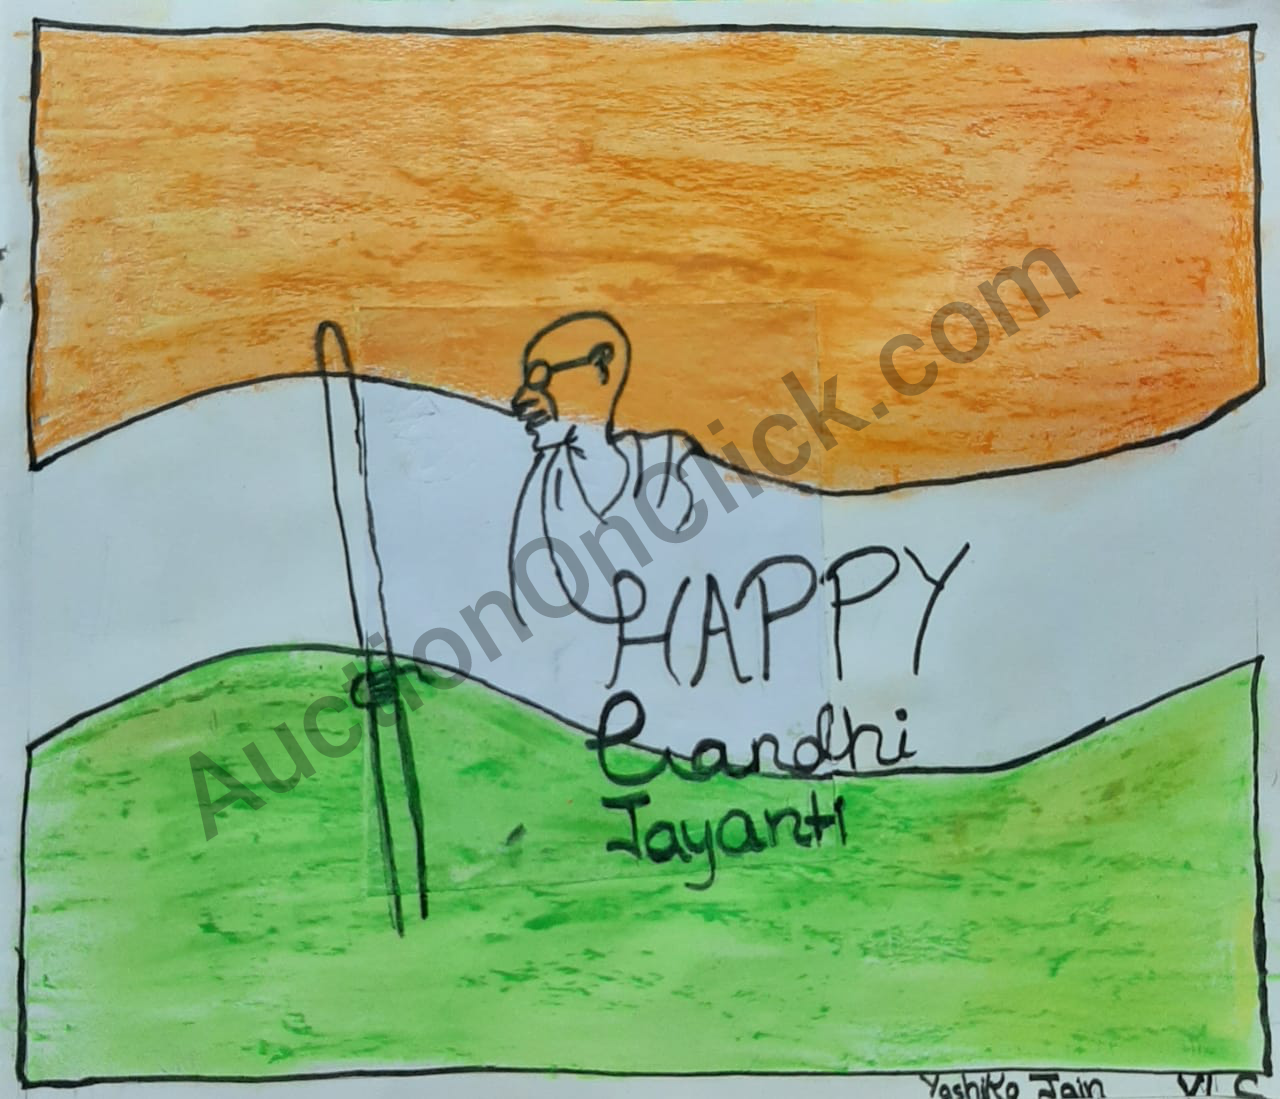 HAPPY
Gandhi
Jayanti
AuctionOnClick.com
Yashika Jain VI C